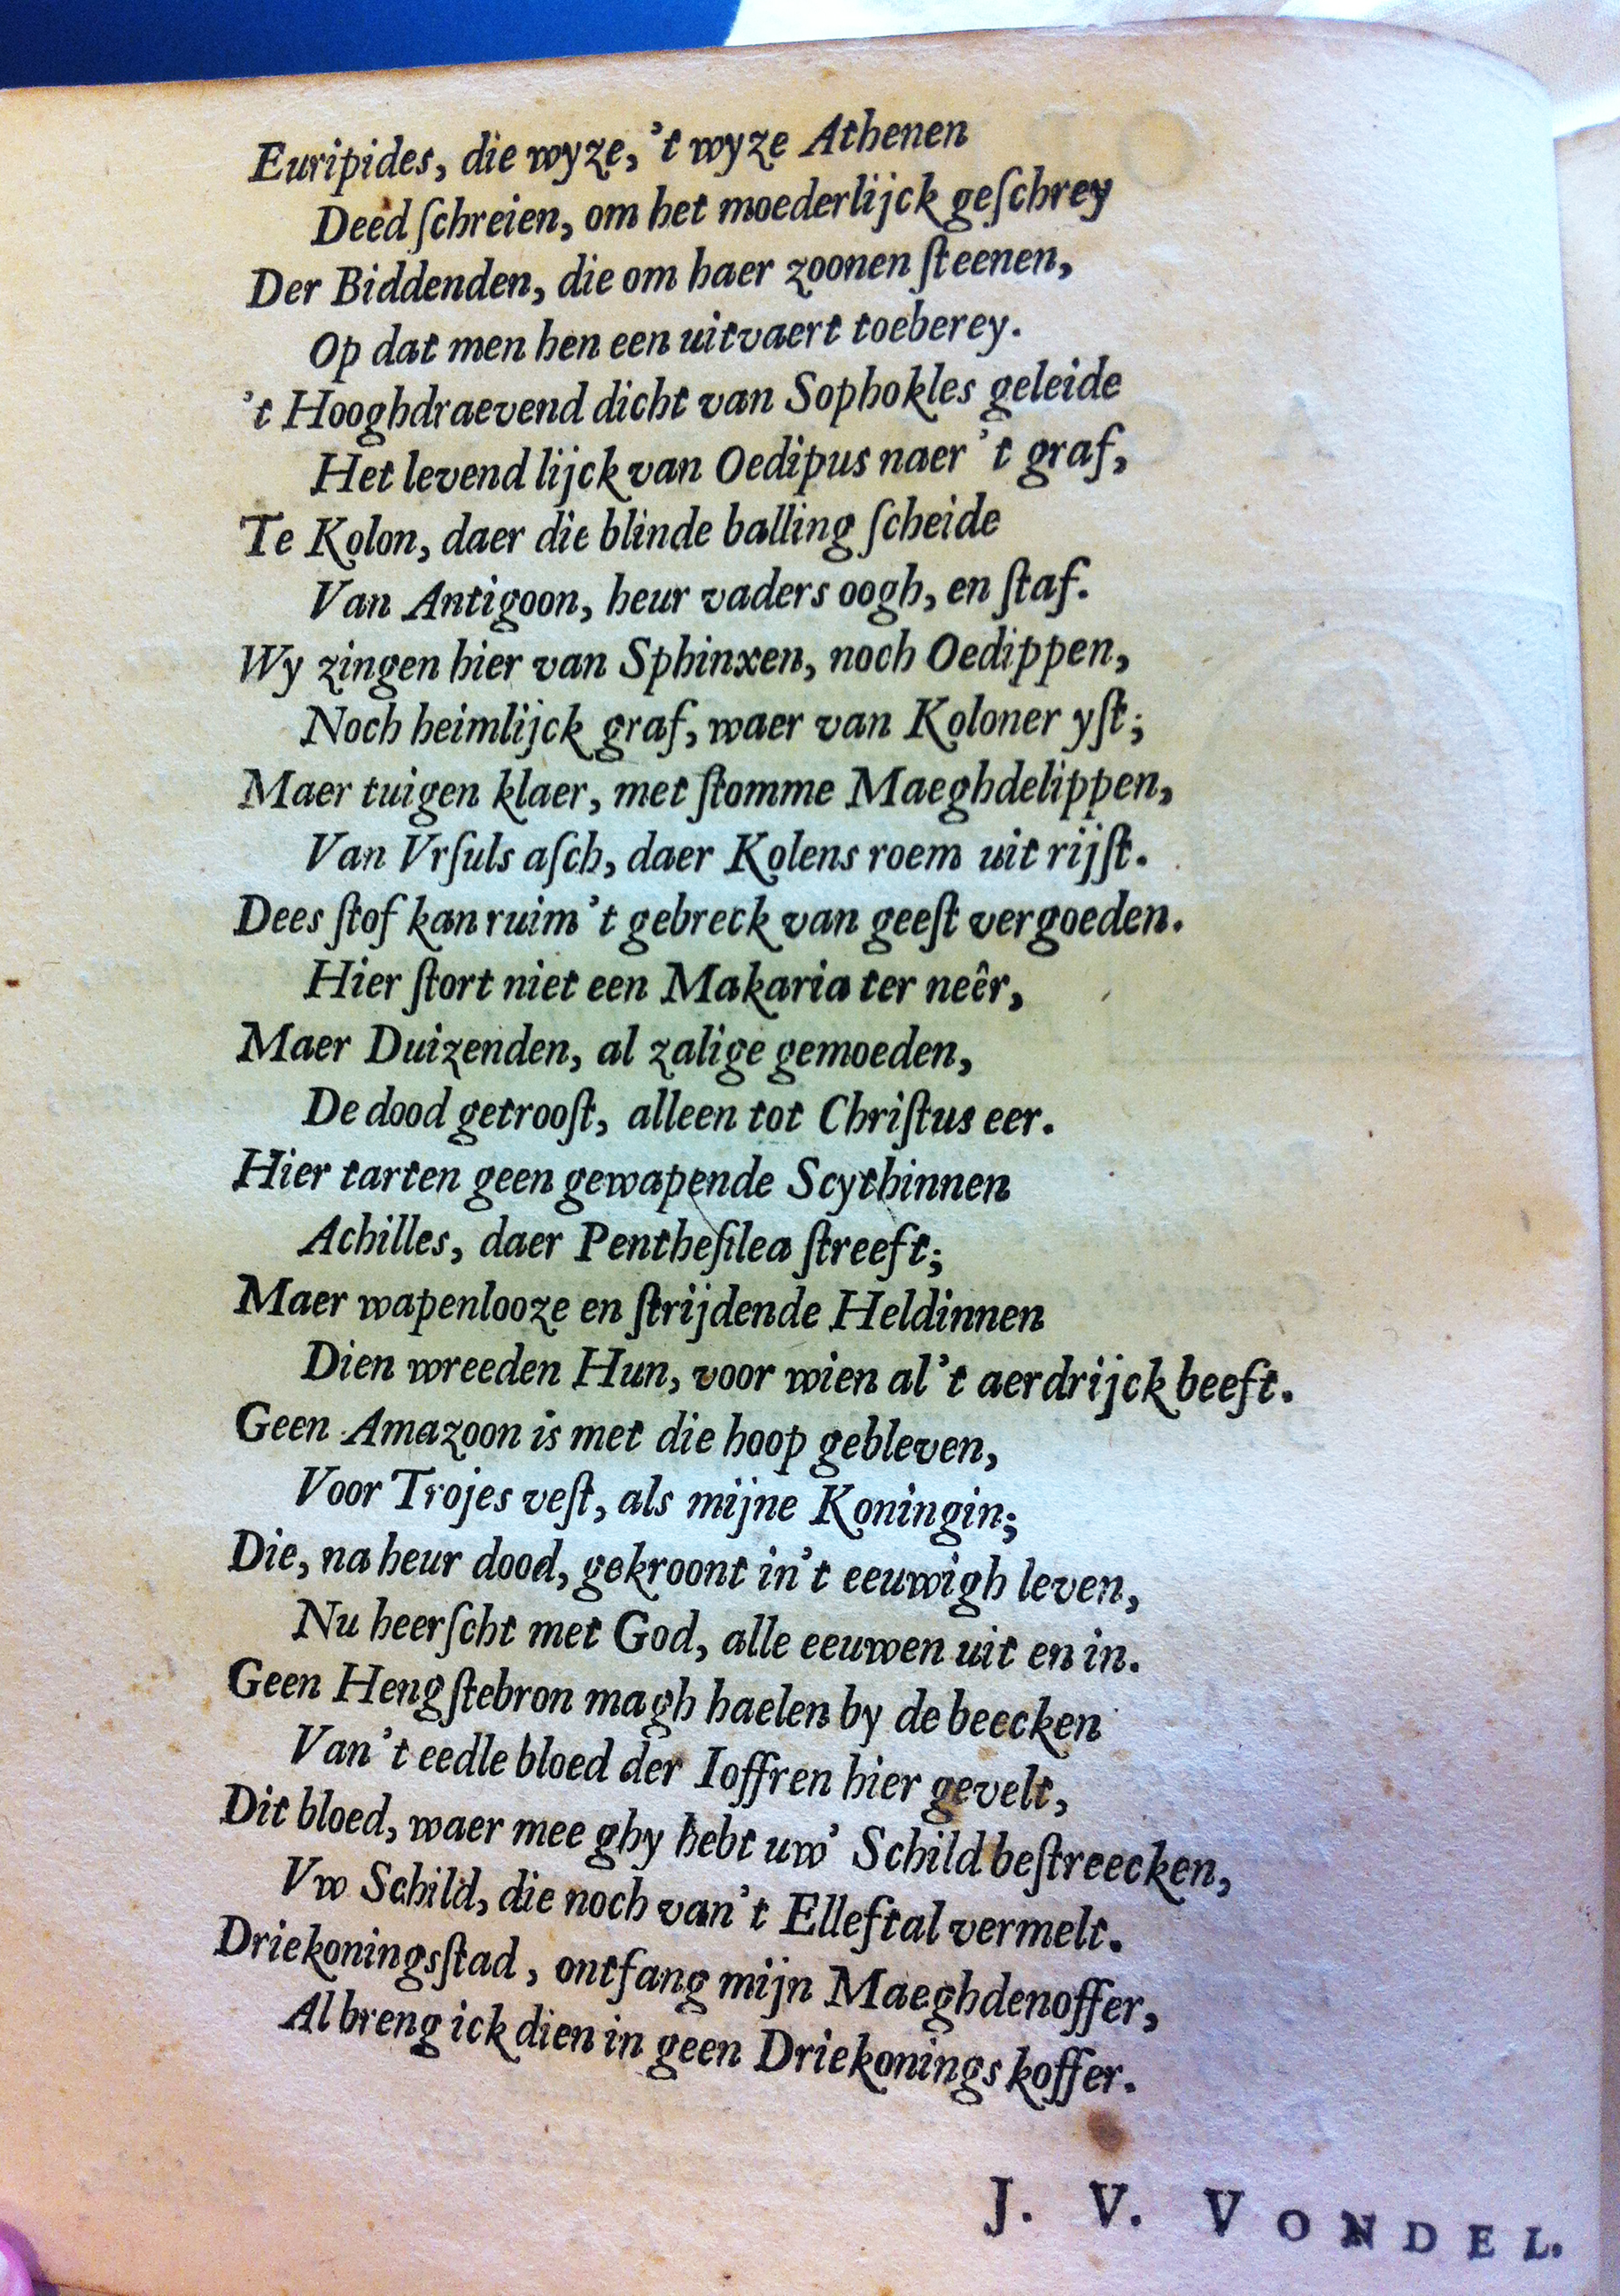 Euripides, die wyze, 't wyze Athenen
Deed ſchreien, om het moederlijck geſchrey
Der Biddenden, die om haer zoonen ſteenen,
Op dat men hen een uitvaert toeberey.
't Hooghdraevend dicht van Sophokles geleide
Het levend lijck van Oedipus naer 't graf,
Te Kolon, daer die blinde balling ſcheide
Van Antigoon, heur vaders oogh, en ſtaf.
Wy zingen hier van Sphinxen, noch Oedippen,
Noch heimlijck graf, waer van Koloner yſt;
Maer tuigen klaer, met ſtomme Maeghdelippen,
Van Vrſuls aſch, daer Kolens roem uit rijſt.
Dees ſtof kan ruim 't gebreck van geeſt vergoeden.
Hier ſtort niet een Makaria ter neêr,
Maer Duizenden, al zalige gemoeden,
De dood getrooſt, alleen tot Chriſtus eer.
Hier tarten geen gewapende Scythinnen
Achilles, daer Pentheſilea ſtreeft;
Maer wapenlooze en ſtrijdende Heldinnen
Dien wreeden Hun, voor wien al 't aerdrijck beeft.
Geen Amazoon is met die hoop gebleven,
Voor Trojes veſt, als mijne Koningin;
Die, na heur dood, gekroont in 't eeuwigh leven,
Nu heerſcht met God, alle eeuwen uit en in.
Geen Hengſtebron magh haelen by de beecken
Van 't eedle bloed der Ioffren hier gevelt,
Dit bloed, waer mee ghy hebt uw' Schild beſtreecken,
Vw Schild, die noch van 't Elleftal vermelt.
Driekoningsſtad, ontfang mijn Maeghdenoffer,
Al breng ick dien in geen Driekonings koffer.
J. V. VONDEL.